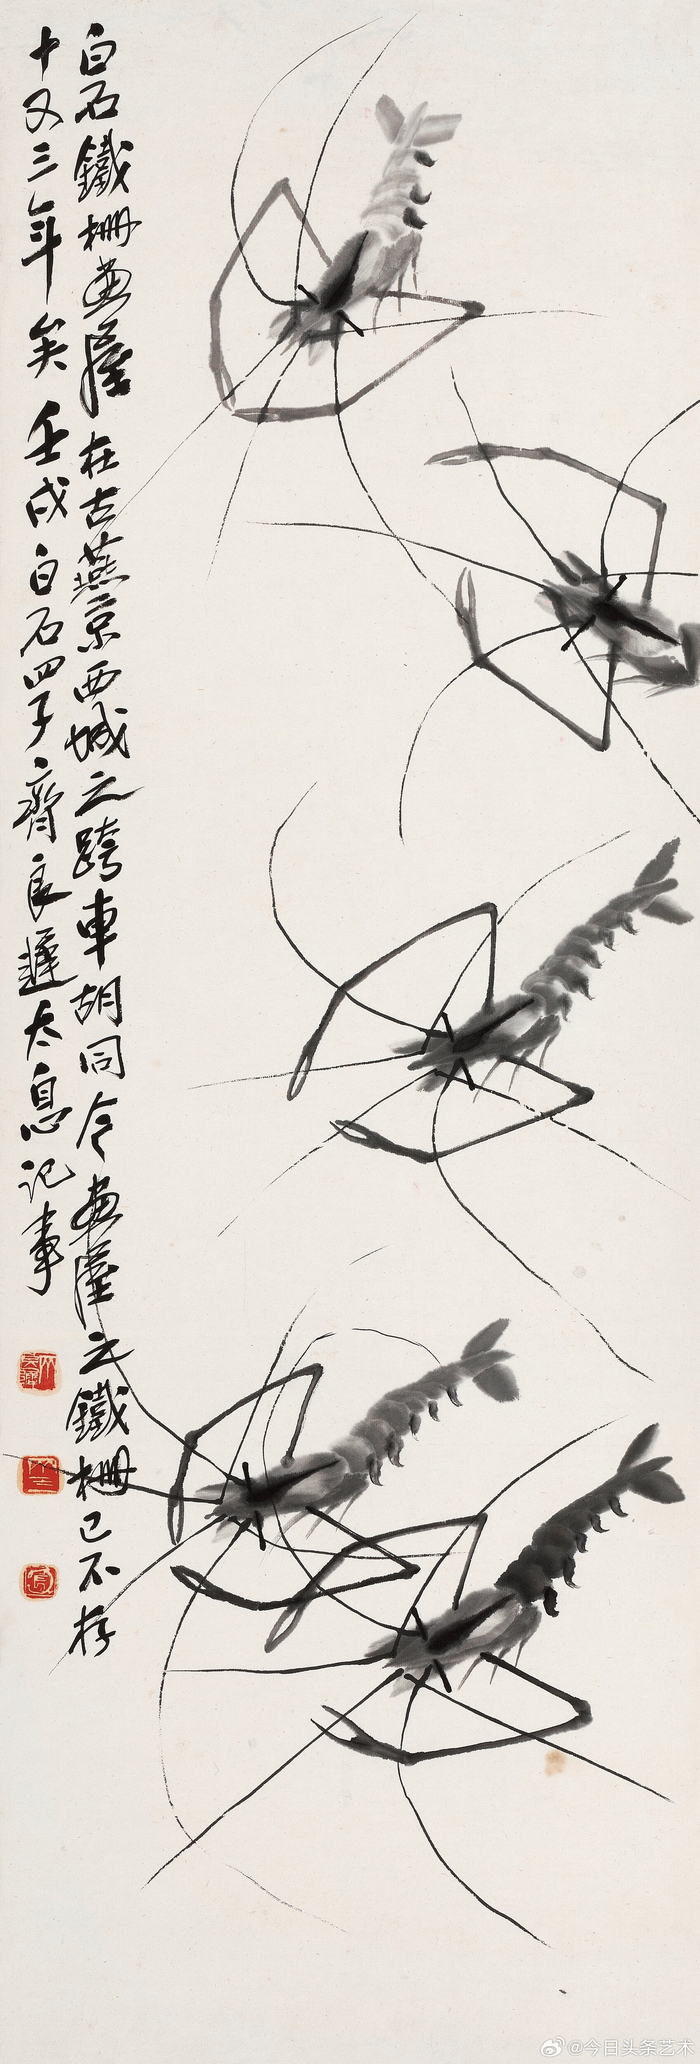 白石鐵柵畫屋在古燕京西城之跨車胡同今畫屋之鐵柵已不存
十又三年矣壬戌白石四子齊良遲太息記事
@今日头条艺术